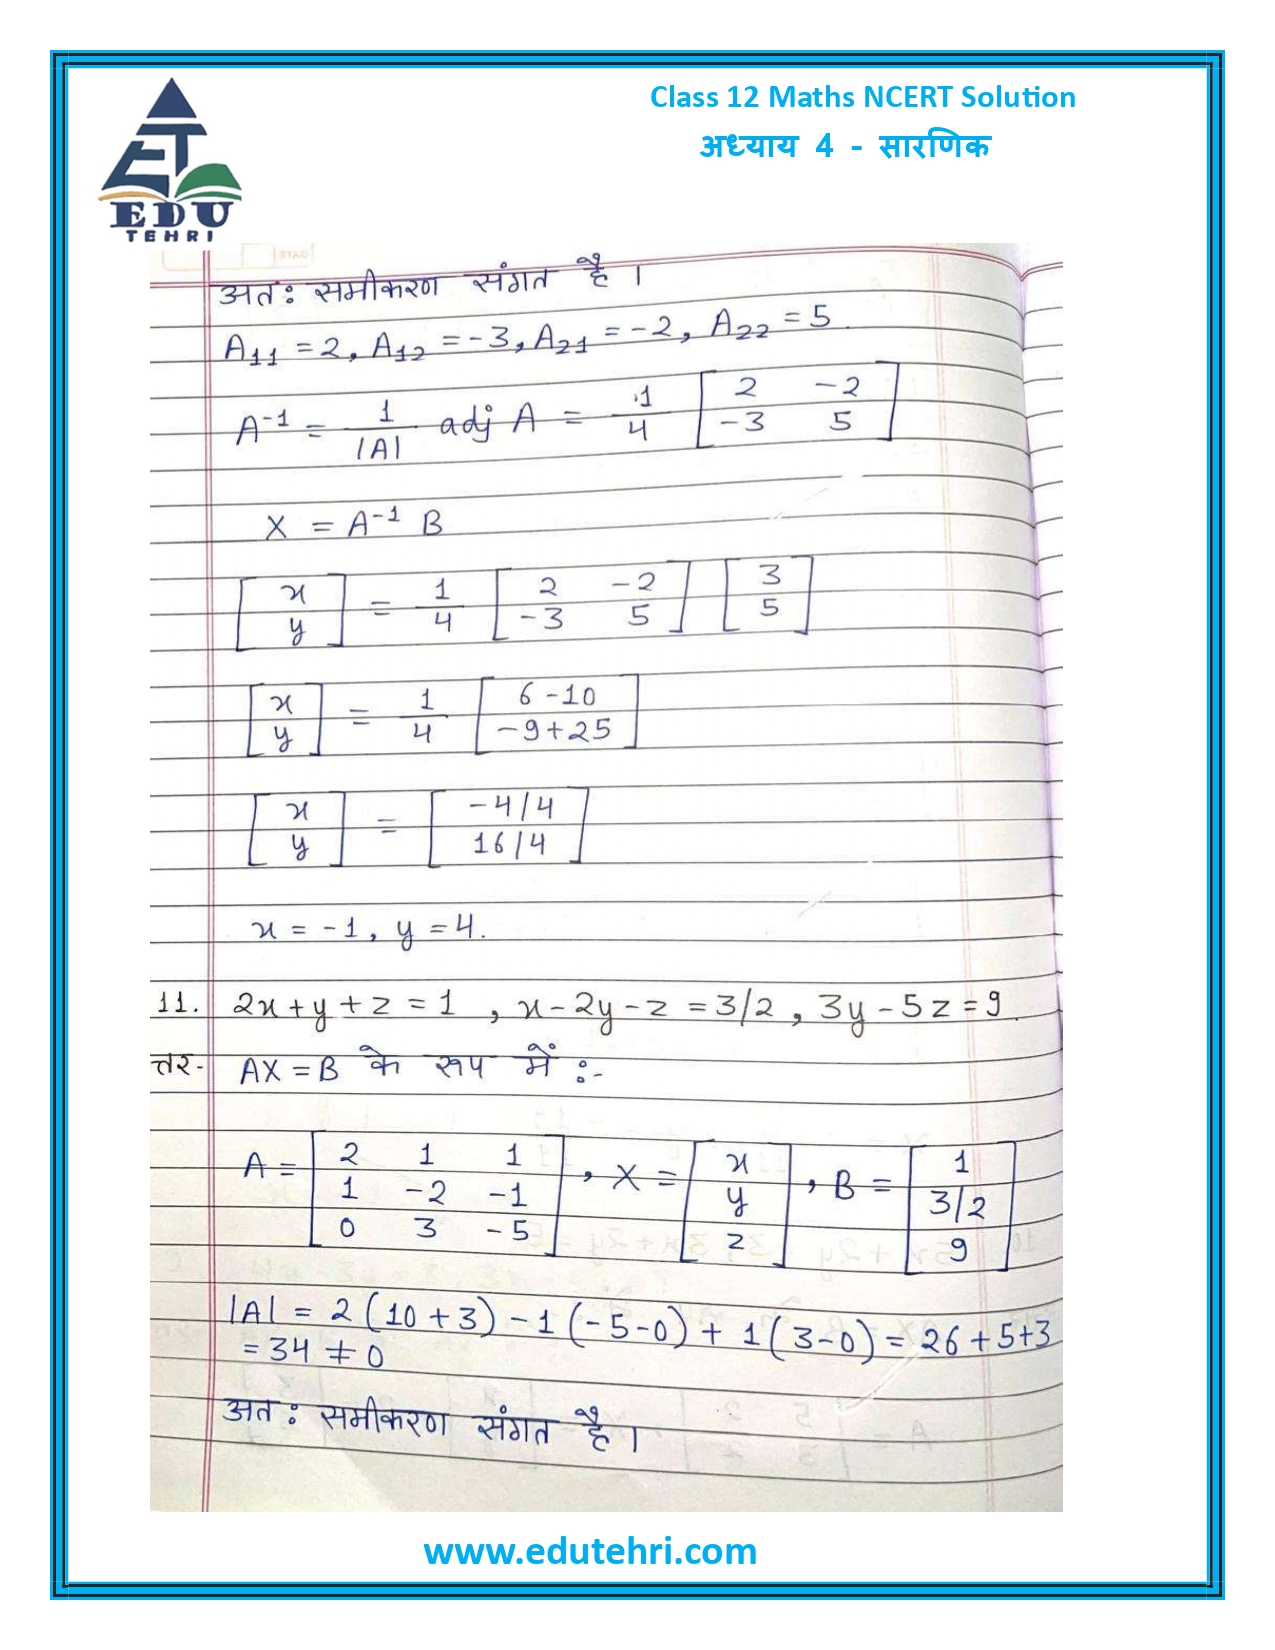 Class 12 Maths NCERT Solution
अध्याय 4 - सारणिक
EDU
TEHRI
अतः समीकरण संगत है ।
A₁₁ = 2, A₁₂ = -3, A₂₁ = -2, A₂₂ = 5
A⁻¹ = 1/|A| adj A = 1/4 [2 -2
-3 5]
X = A⁻¹ B
[x
y] = 1/4 [2 -2
-3 5] [3
5]
[x
y] = 1/4 [6-10
-9+25]
[x
y] = [-4/4
16/4]
x = -1, y = 4.
11. 2x+y+z = 1 , x-2y-z = 3/2, 3y-5z = 9.
त्तर- AX = B के रूप में :-
A = [2 1 1
1 -2 -1
0 3 -5] , X = [x
y
z] , B = [1
3/2
9]
|A| = 2(10+3) - 1(-5-0) + 1(3-0) = 26+5+3
= 34 ≠ 0
अतः समीकरण संगत है ।
www.edutehri.com